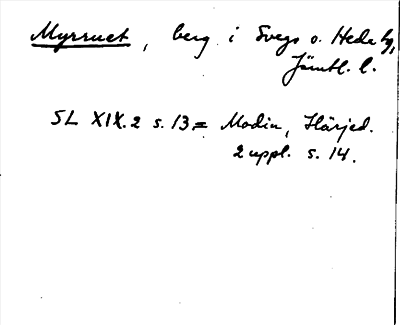 Myrruet, berg i Svegs o. Hede tg,
Jämtl. l.
SL XIX.2 s. 13 = Modin, Härjed.
2 uppl. s. 14.